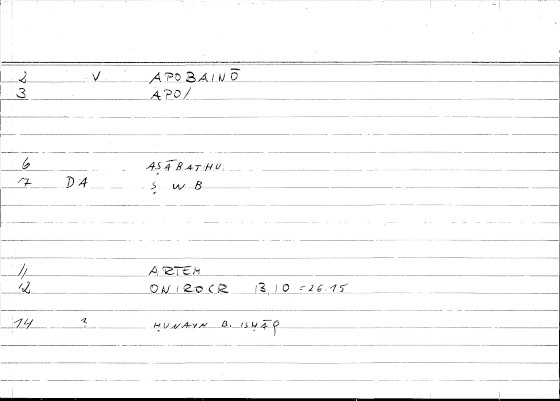 2 V APOBAINŌ
3 APO/
6 AṢĀBATHU
7 DA Ṣ W B
11 ARTEM
12 ONIROCR 13,10 = 26.15
14 ? ḤUNAYN B. ISḤĀQ